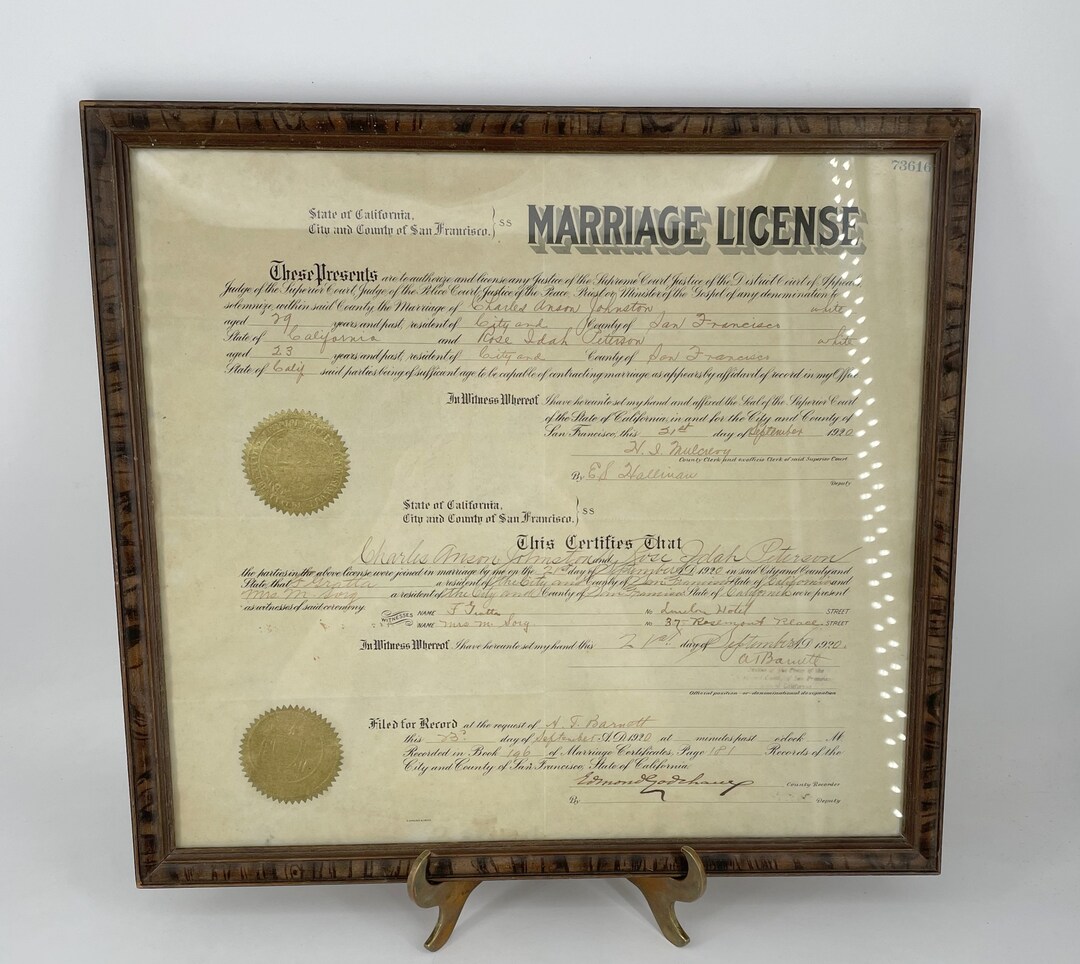 73616
State of California,
City and County of San Francisco. } SS
MARRIAGE LICENSE
These Presents are to authorize and license any Justice of the Supreme Court Justice of the District Court of Appeals
Judge of the Superior Court Judge of the Police Court Justice of the Peace, Priest or Minister of the Gospel of any denomination to
solemnize within said County, the Marriage of Charles Anson Johnston white
aged 29 years and past, resident of City and County of San Francisco
State of California and Rose Idah Peterson white
aged 23 years and past, resident of City and County of San Francisco
State of Calif said parties being of sufficient age to be capable of contracting marriage as appears by affidavit of record in my Office
In Witness Whereof I have hereunto set my hand and affixed the Seal of the Superior Court
of the State of California, in and for the City and County of
San Francisco, this 21st day of September 1920
H. I. Mulcrevy
County Clerk and ex-officio Clerk of said Superior Court
By E S Hallinan
Deputy
State of California,
City and County of San Francisco. } SS
This Certifies That
Charles Anson Johnston and Rose Idah Peterson
the parties in the above license were joined in marriage by me on the 21st day of September A.D. 1920 in said City and County and
State, that a resident of the City and County of San Francisco State of California and
Mrs M. Sorg a resident of the City and County of San Francisco State of California were present
as witnesses of said ceremony.
WITNESSES NAME F. No London Hotel STREET
NAME Mrs M Sorg No 37 Rosemont Place. STREET
In Witness Whereof I have hereunto set my hand this 21st day of September A.D. 1920.
A T Barnett
Official position or denominational designation
Filed for Record at the request of A. T. Barnett
this 23 day of September A.D. 1920 at minutes past o'clock M
Recorded in Book 196 of Marriage Certificates, Page 181 Records of the
City and County of San Francisco, State of California
Edmond Godchaux County Recorder
By Deputy